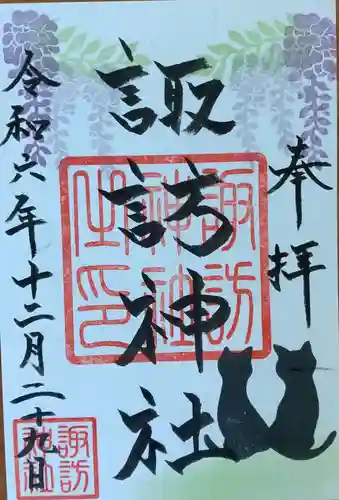 奉拝
諏訪神社
令和六年十二月二十九日
諏訪神社之印
諏訪神社